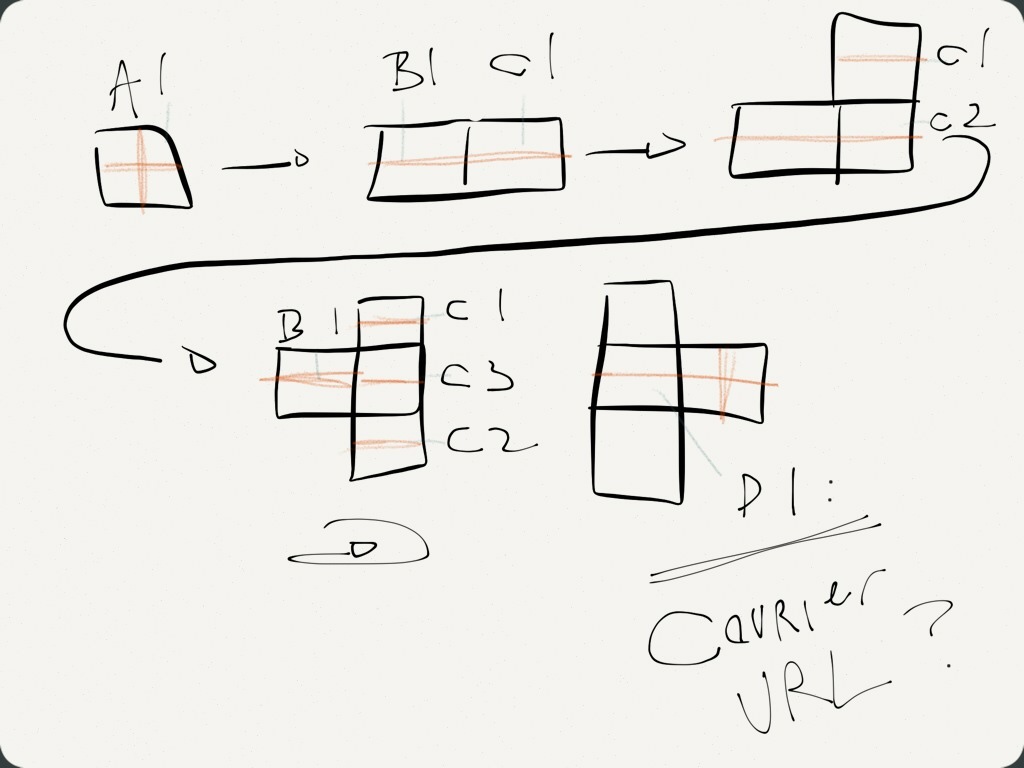 A1
B1 C1
C1
C2
B1 C1
C3
C2
D1:
Carrier
URL ?